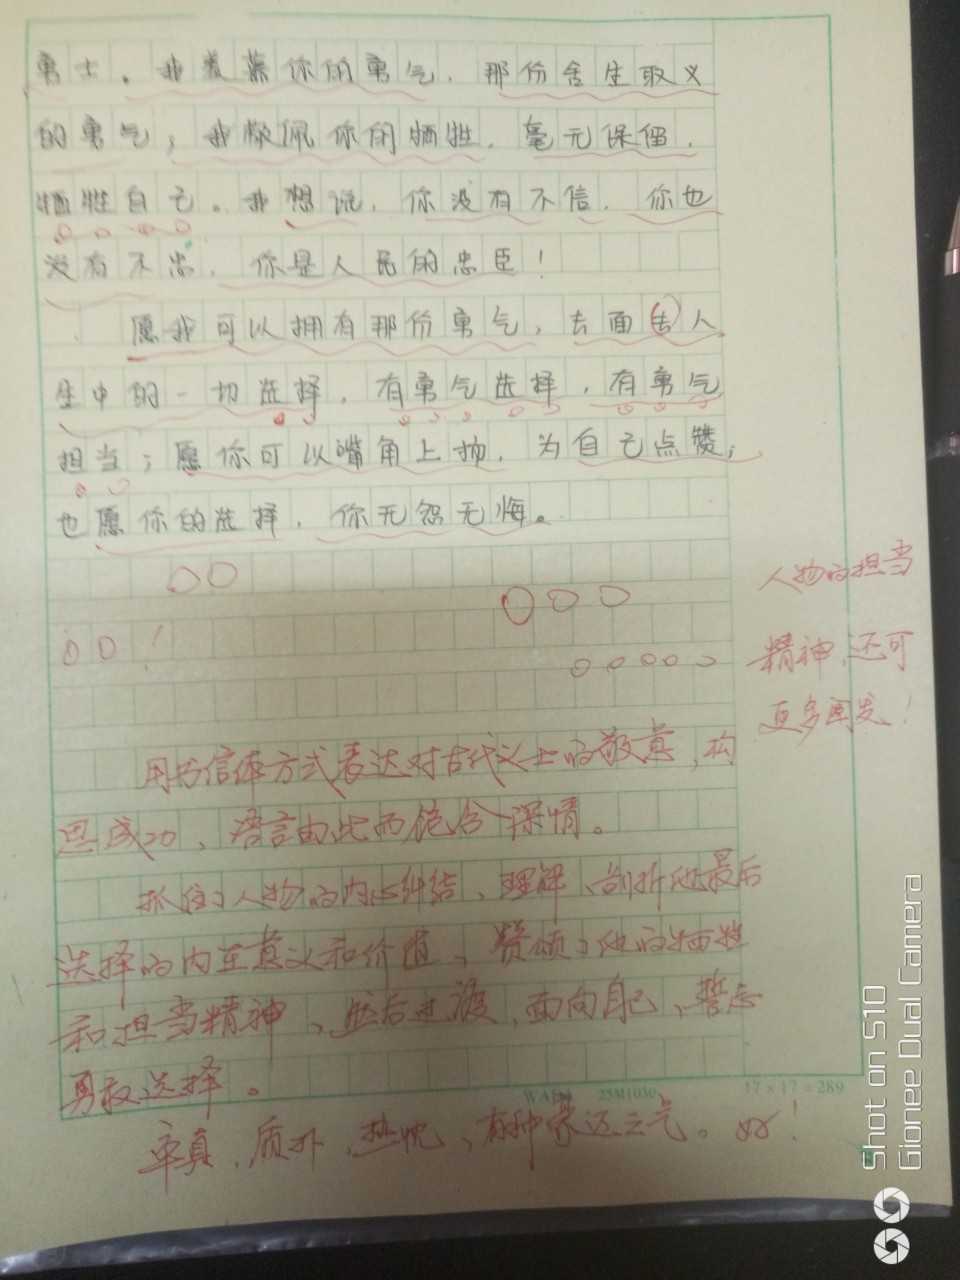 勇士。我羡慕你的勇气，那份舍生取义
的勇气；我敬佩你的牺牲，毫无保留，
牺牲自己。我想说，你没有不信，你也
没有不忠，你是人民的忠臣！
愿我可以拥有那份勇气，去面去人
生中的一切选择，有勇气选择，有勇气
担当；愿你可以嘴角上扬，为自己点赞；
也愿你的选择，你无怨无悔。
人物的担当
精神，还可
更多阐发！
用书信体方式表达对古代义士的敬意，构
思成功，语言由此而饱含深情。
抓住了人物的内心纠结，理解、剖析他最后
选择的内在意义和价值，赞颂了他的牺牲
和担当精神，然后过渡，面向自己，誓志
勇敢选择。
率真，质朴，热忱，有种豪迈之气。好！
WA 25M1030 17×17=289
Shot on S10
Gionee Dual Camera